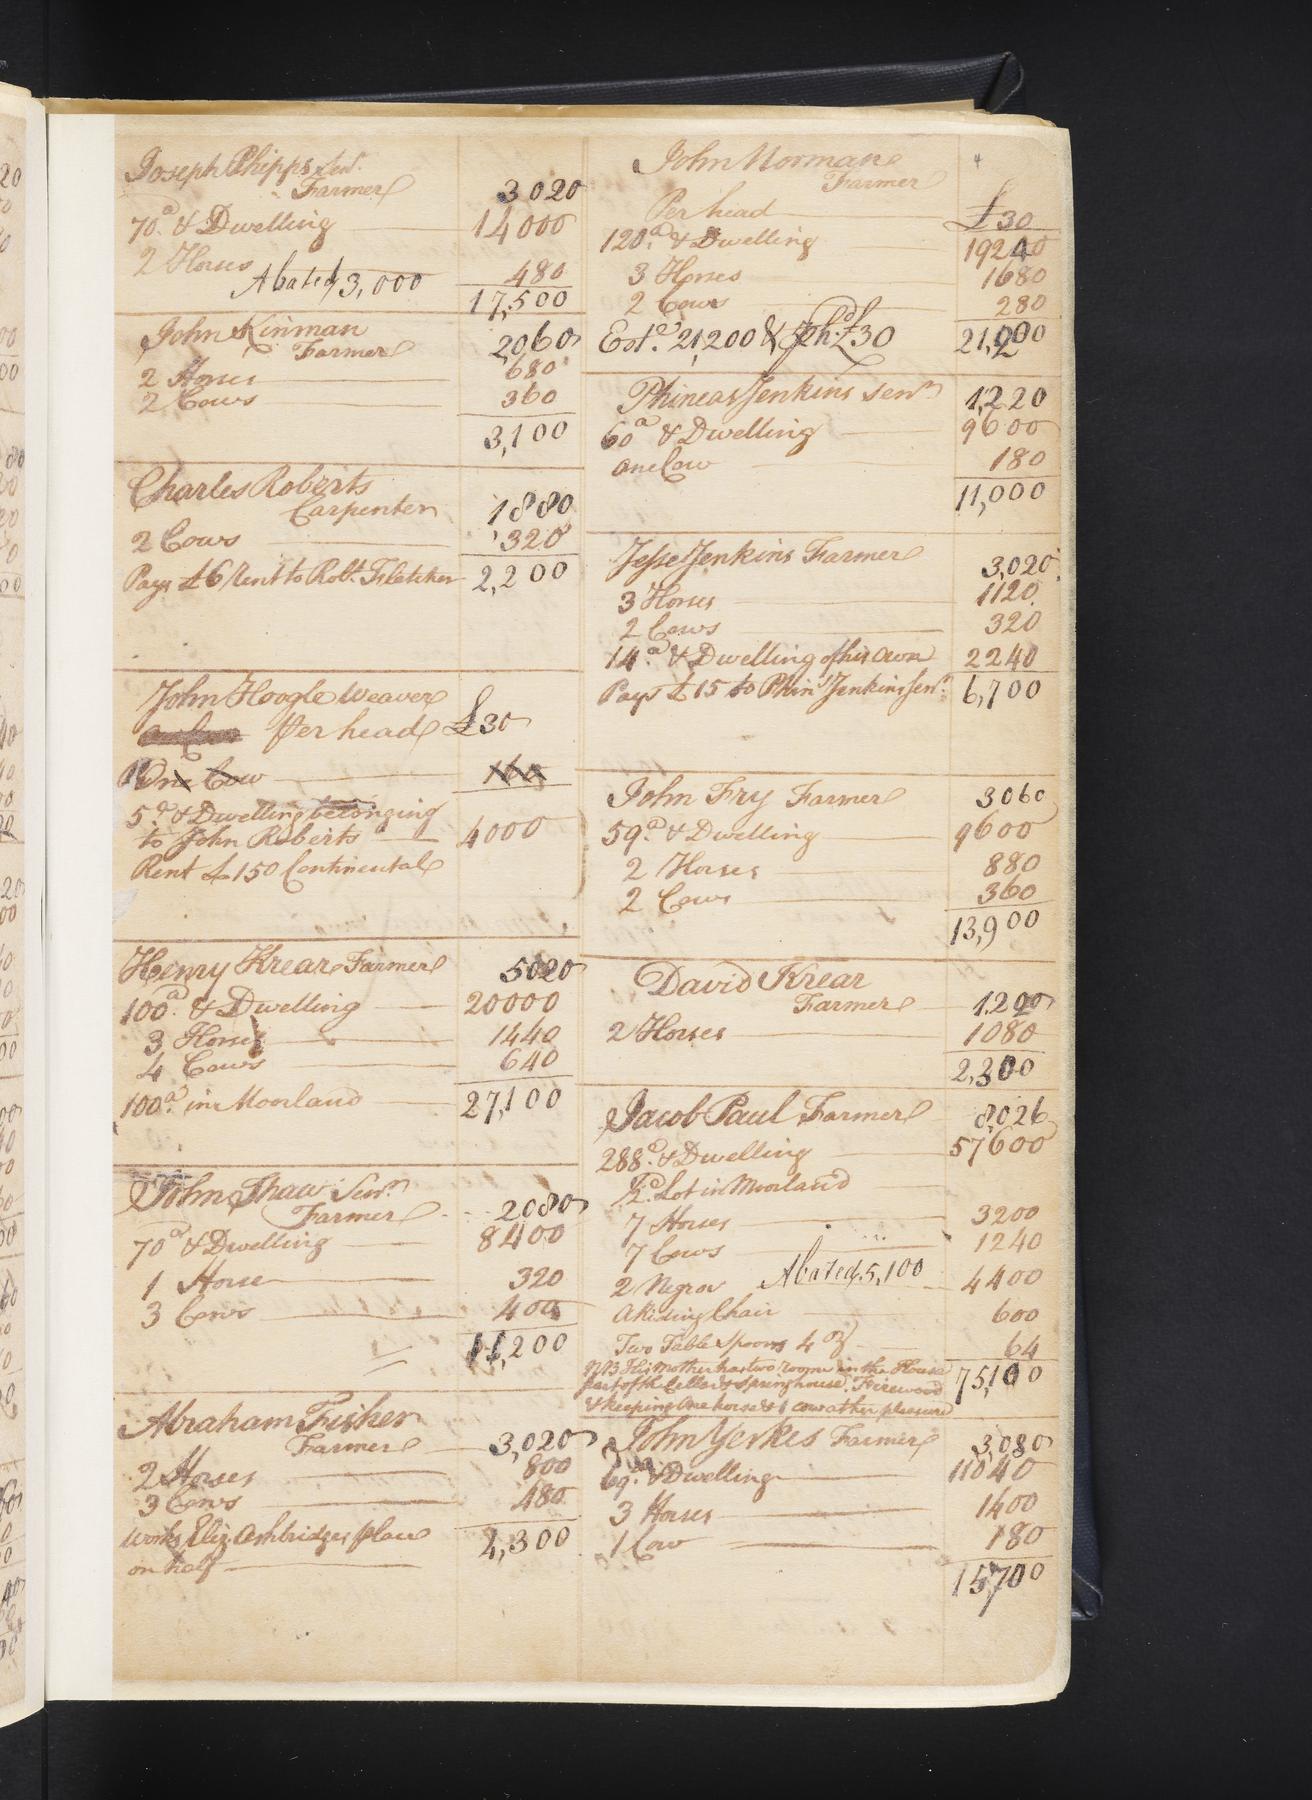 Joseph Phipps Senr.
Farmer 3020
70.a & Dwelling 14000
2 Horses 480
Abated 3,000
17,500
John Kinman
Farmer 2,060
2 Horses 680
2 Cows 360
3,100
Charles Roberts
Carpenter 1880
2 Cows 320
Pays £6 Rent to Robt. Fletcher 2,200
John Hoogle Weaver
Per head £30
One Cow 160
5.a & Dwelling belonging
to John Roberts 4000
Rent £150 Continental
Henry Krear Farmer 5020
100a. & Dwelling 20000
3 Horses 1440
4 Cows 640
100a. in Moorland 27,100
John Shaw Senr.
Farmer 2080
70a & Dwelling 8400
1 Horse 320
3 Cows 400
11,200
Abraham Fisher
Farmer 3,020
2 Horses 800
3 Cows 480
Works Eliz. Ashbridges place 4,300
on half
4
John Norman
Farmer
Per head £30
120.a & Dwelling 19240
3 Horses 1680
2 Cows 280
Est.e 21,200 & Ph.d £30 21,200
Phineas Jenkins Senr. 1,220
60a & Dwelling 9600
one Cow 180
11,000
Jesse Jenkins Farmer 3,020
3 Horses 1120
2 Cows 320
14.a & Dwelling of his own 2240
Pays £15 to Phins. Jenkins Senr. 6,700
John Fry Farmer 3060
59.a & Dwelling 9600
2 Horses 880
2 Cows 360
13,900
David Krear
Farmer 1,200
2 Horses 1080
2,300
Jacob Paul Farmer 8,026
288.a & Dwelling 57600
½a. Lot in Moorland
7 Horses 3200
7 Cows 1240
2 Negros Abated 5,100 4400
A Riding Chair 600
Two Table Spoons 4 oz 64
NB His Mother has two rooms in the House 75,100
part of the Cellar & Springhouse, Firewood
& keeping One horse & 1 cow at her pleasure
John Yerkes Farmer 3,080
69.a & Dwelling 11040
3 Horses 1400
1 Cow 180
15,700